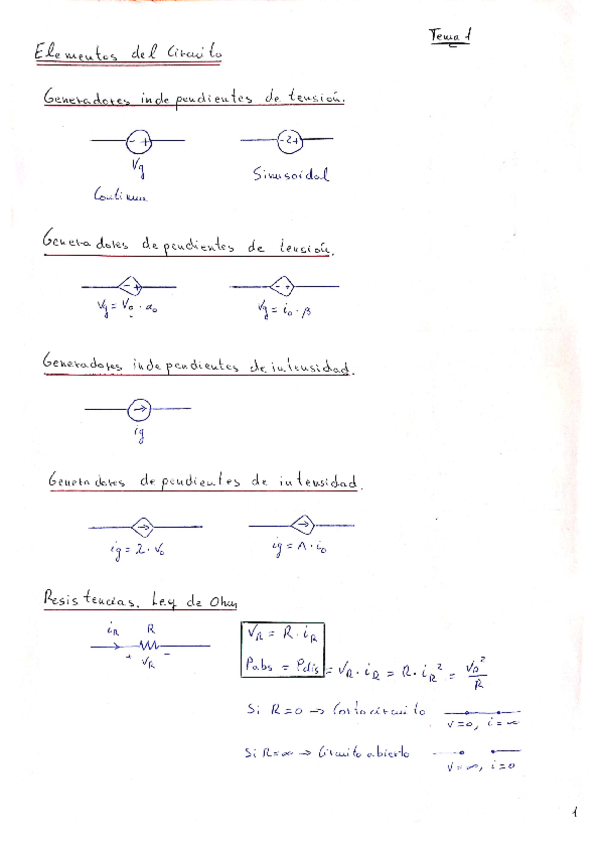 Tema 1
Elementos del Circuito
Generadores independientes de tensión.
- + - +
Vg
Sinusoidal
Continua
Generadores dependientes de tensión.
- + - +
Vg = Vo · αo Vg = io · β
Generadores independientes de intensidad.
ig
Generadores dependientes de intensidad.
ig = 2 · vo ig = Λ · io
Resistencias. Ley de Ohm
iR R
+ VR -
VR = R · iR
Pabs = Pdis = VR · iR = R · iR² = VR²/R
Si R=0 → Cortocircuito
V=0, i=∞
Si R=∞ → Circuito abierto
V=∞, i=0
1